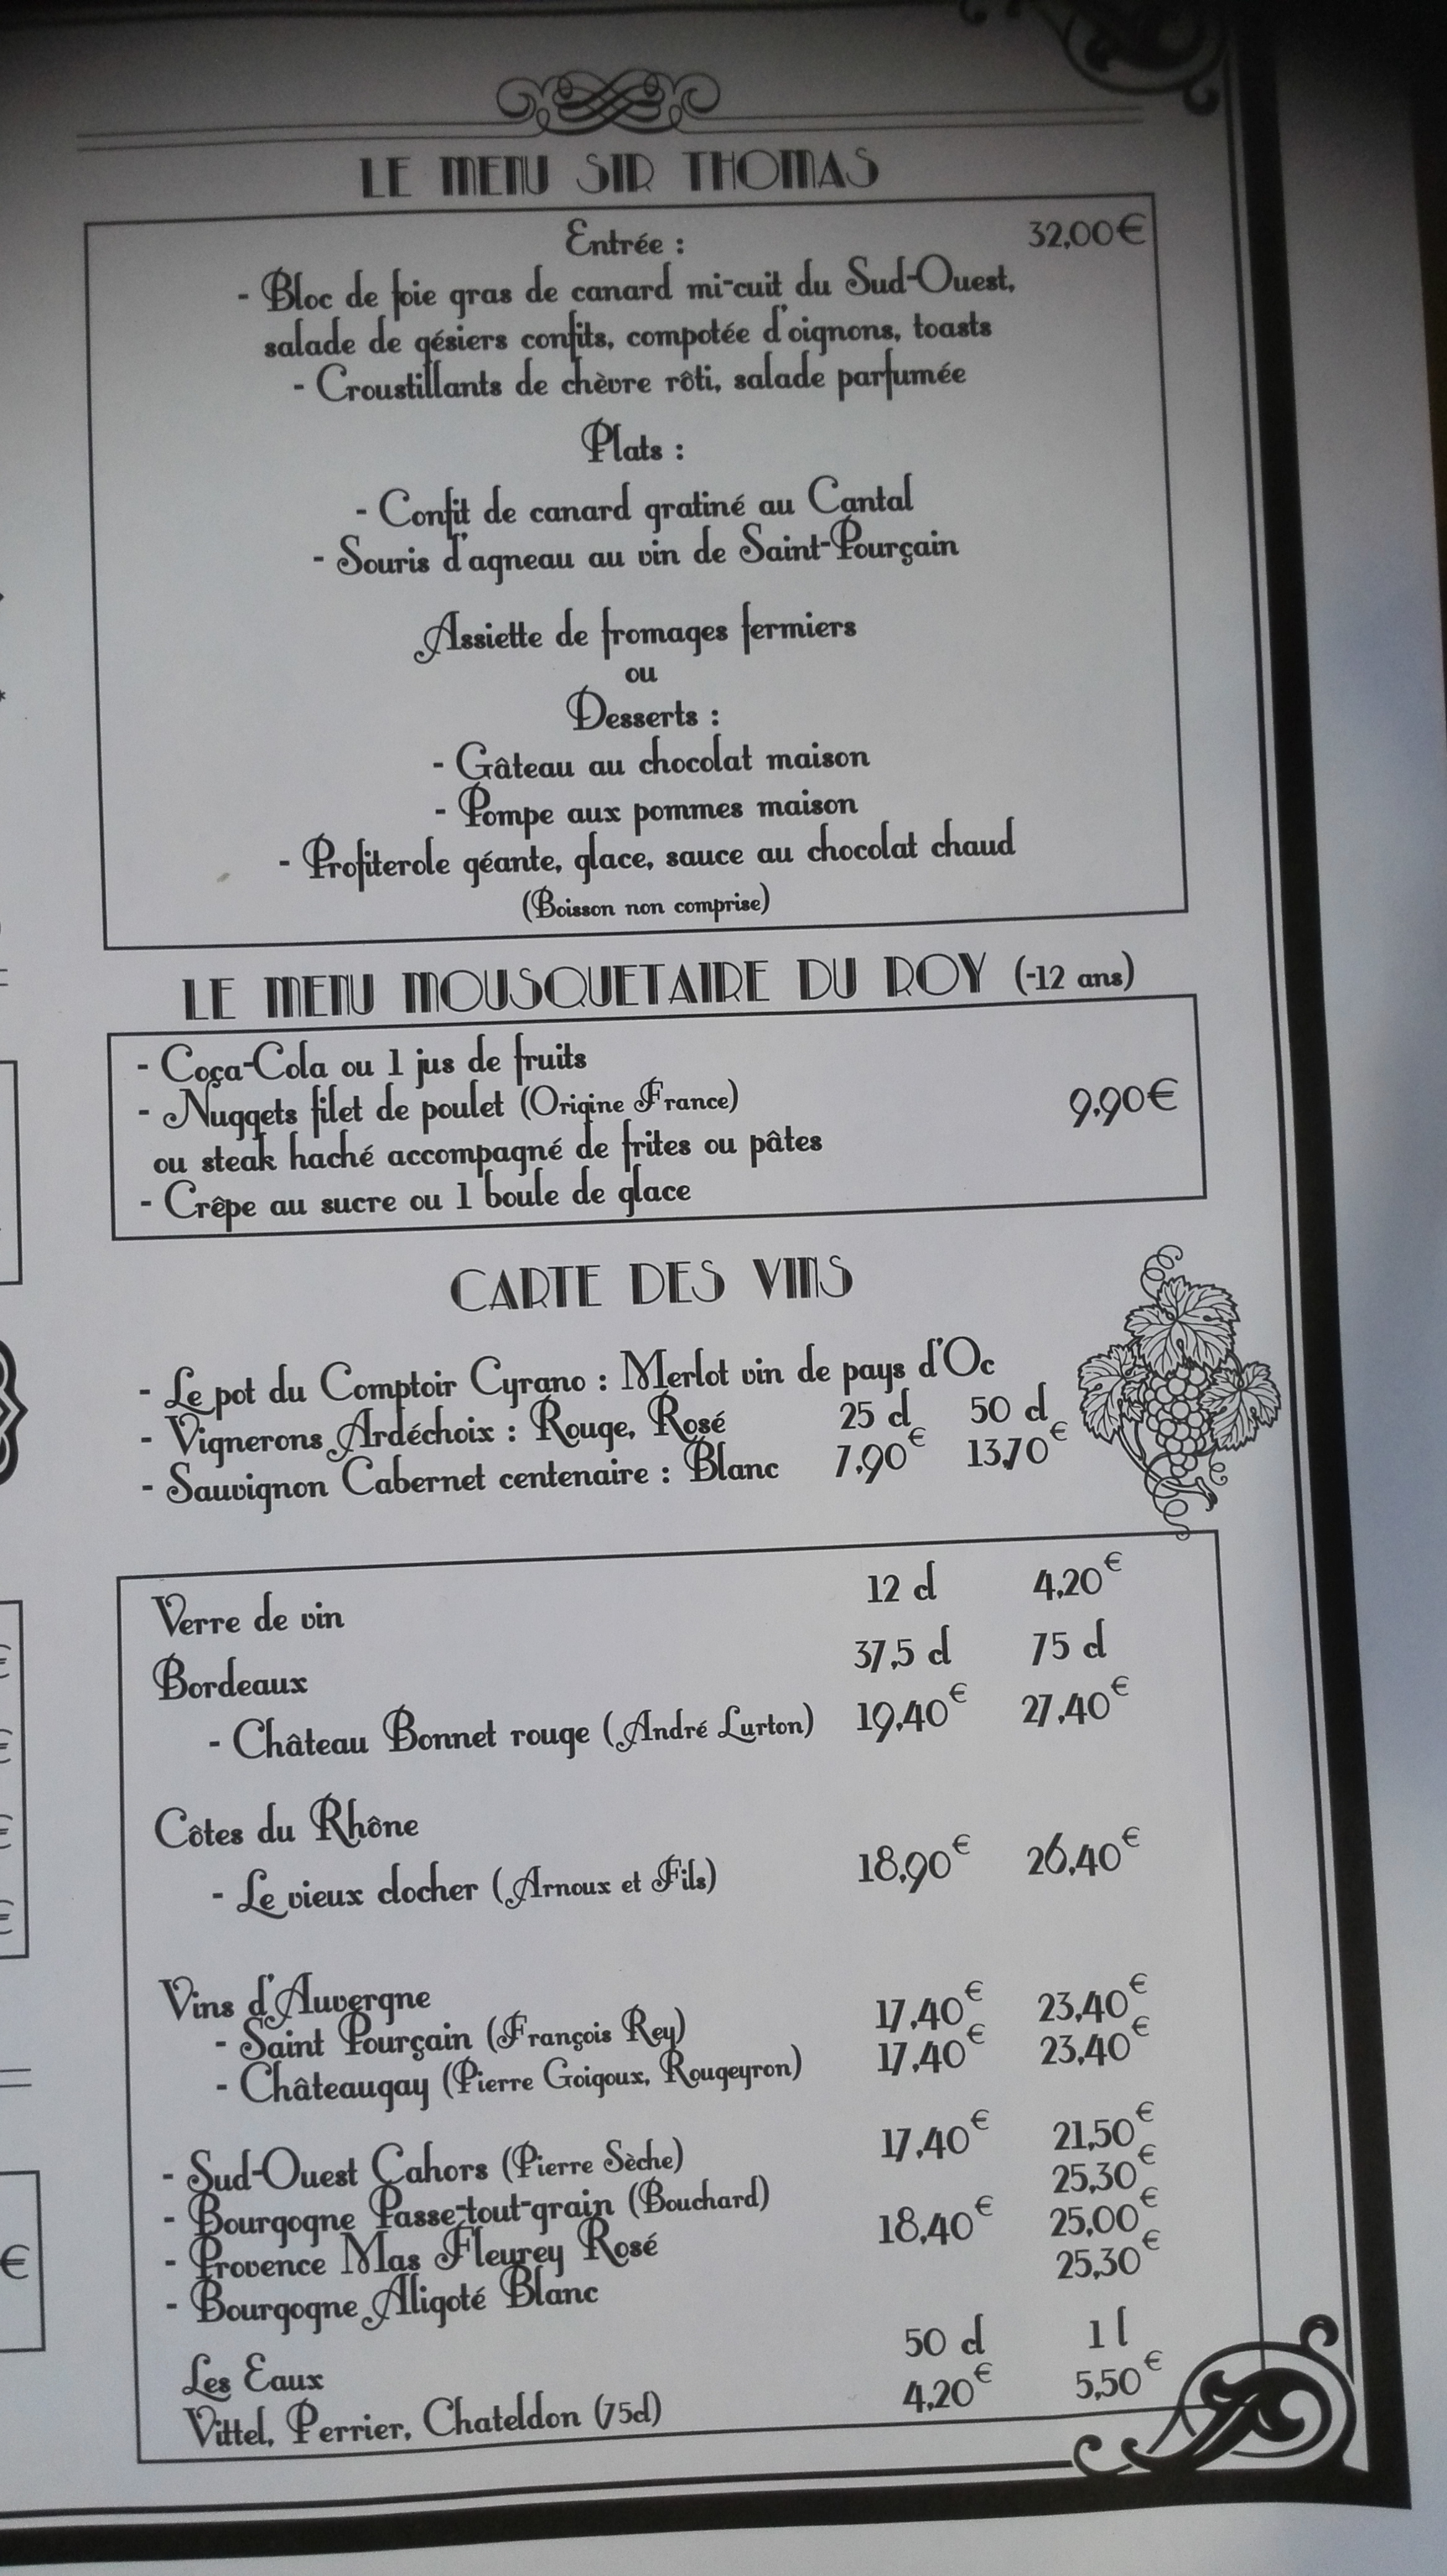 LE MENU SIR THOMAS
Entrée : 32,00€
- Bloc de foie gras de canard mi-cuit du Sud-Ouest,
salade de gésiers confits, compotée d'oignons, toasts
- Croustillants de chèvre rôti, salade parfumée
Plats :
- Confit de canard gratiné au Cantal
- Souris d'agneau au vin de Saint-Pourçain
Assiette de fromages fermiers
ou
Desserts :
- Gâteau au chocolat maison
- Pompe aux pommes maison
- Profiterole géante, glace, sauce au chocolat chaud
(Boisson non comprise)
LE MENU MOUSQUETAIRE DU ROY (-12 ans)
- Coca-Cola ou 1 jus de fruits
- Nuggets filet de poulet (Origine France) 9,90€
ou steak haché accompagné de frites ou pâtes
- Crêpe au sucre ou 1 boule de glace
CARTE DES VINS
- Le pot du Comptoir Cyrano : Merlot vin de pays d'Oc
- Vignerons Ardéchoix : Rouge, Rosé 25 cl 50 cl
- Sauvignon Cabernet centenaire : Blanc 7,90€ 13,70€
Verre de vin 12 cl 4,20€
Bordeaux 37,5 cl 75 cl
- Château Bonnet rouge (André Lurton) 19,40€ 27,40€
Côtes du Rhône
- Le vieux clocher (Arnoux et Fils) 18,90€ 26,40€
Vins d'Auvergne
- Saint Pourçain (François Rey) 17,40€ 23,40€
- Châteaugay (Pierre Goigoux, Rougeyron) 17,40€ 23,40€
- Sud-Ouest Cahors (Pierre Sèche) 17,40€ 21,50€
- Bourgogne Passe-tout-grain (Bouchard) 25,30€
- Provence Mas Fleurey Rosé 18,40€ 25,00€
- Bourgogne Aligoté Blanc 25,30€
Les Eaux 50 cl 1 l
Vittel, Perrier, Chateldon (75cl) 4,20€ 5,50€